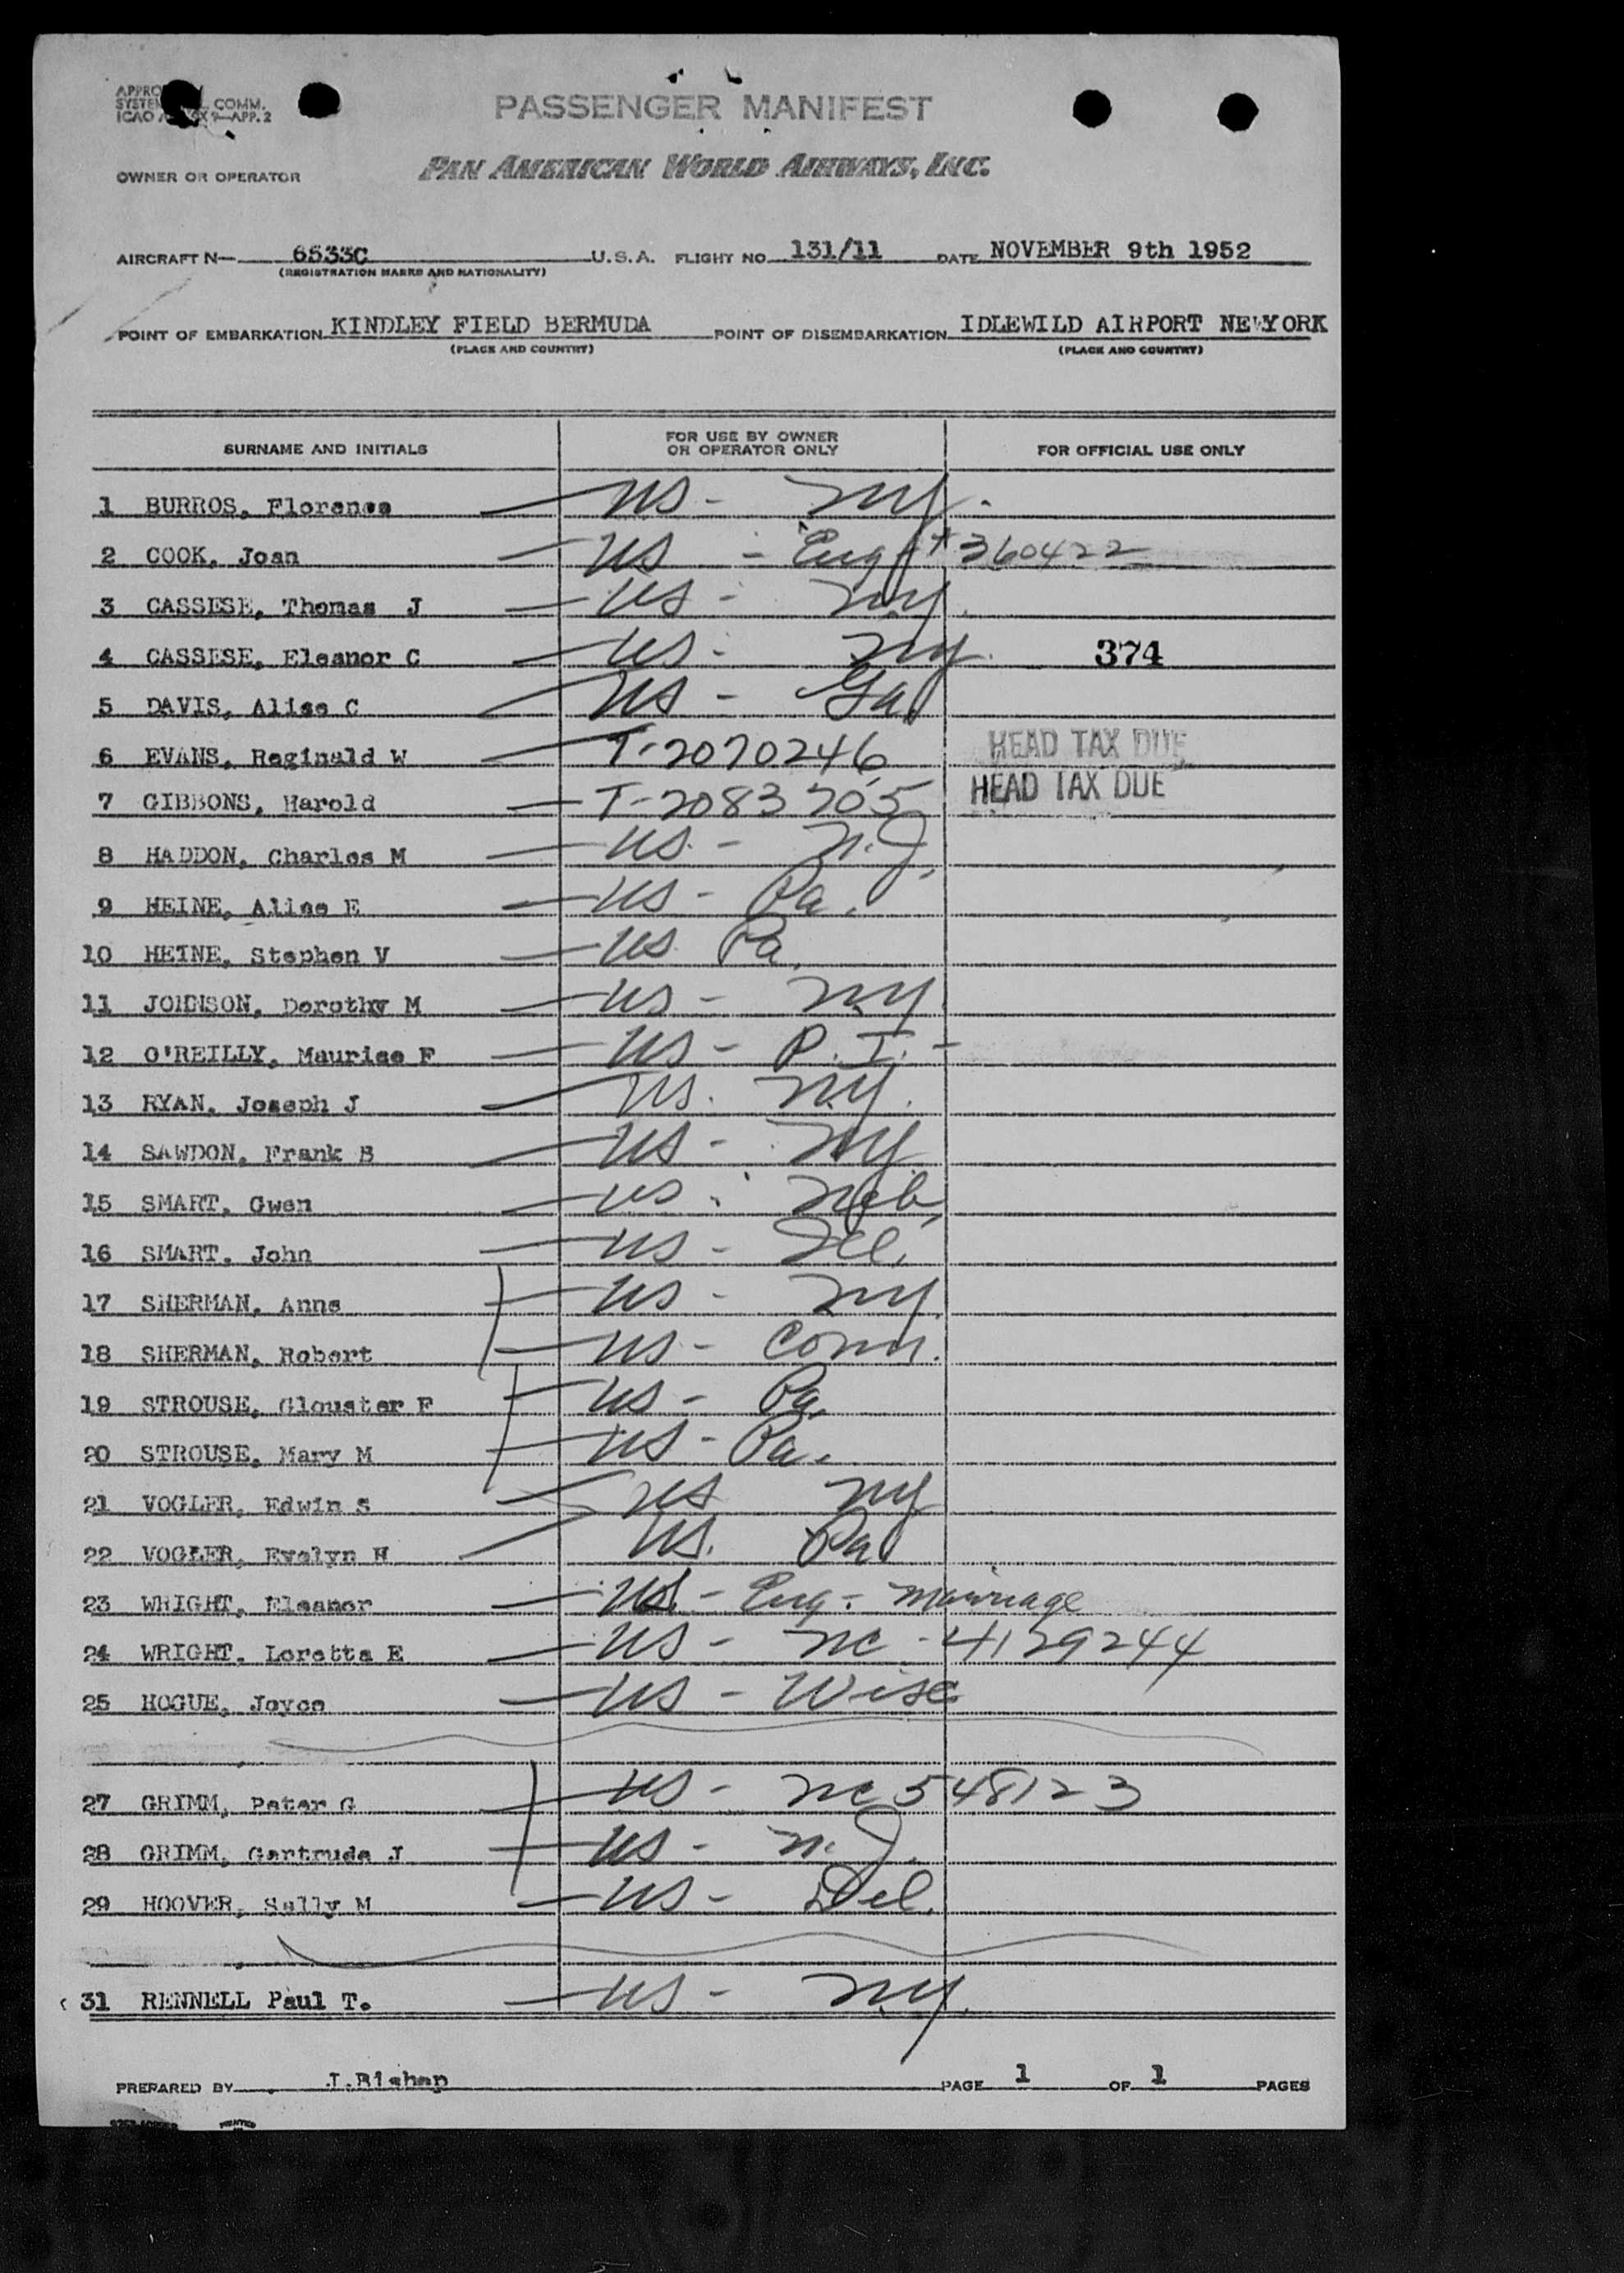 PASSENGER MANIFEST
COMM.
ICAO APP. 2
OWNER OR OPERATOR PAN AMERICAN WORLD AIRWAYS, INC.
AIRCRAFT N— 6533C U.S.A. FLIGHT NO. 131/11 DATE NOVEMBER 9th 1952
(REGISTRATION MARKS AND NATIONALITY)
POINT OF EMBARKATION KINDLEY FIELD BERMUDA POINT OF DISEMBARKATION IDLEWILD AIRPORT NEWYORK
(PLACE AND COUNTRY) (PLACE AND COUNTRY)
SURNAME AND INITIALS FOR USE BY OWNER OR OPERATOR ONLY FOR OFFICIAL USE ONLY
1 BURROS, Florence — US - NY.
2 COOK, Joan — US - Eng - # 360422
3 CASSESE, Thomas J — US - NY.
4 CASSESE, Eleanor C — US - NY. 374
5 DAVIS, Alice C — US - Ga
6 EVANS, Reginald W — T-2070246 HEAD TAX DUE
7 GIBBONS, Harold — T-2083705 HEAD TAX DUE
8 HADDON, Charles M — US - N.J.
9 HEINE, Alice E — US - Pa.
10 HEINE, Stephen V — US Pa.
11 JOHNSON, Dorothy M — US - NY.
12 O'REILLY, Maurice F — US - P.I. -
13 RYAN, Joseph J — US. NY.
14 SAWDON, Frank B — US - NY
15 SMART, Gwen — US - Neb.
16 SMART, John — US - Ill.
17 SHERMAN, Anne — US - NY.
18 SHERMAN, Robert — US - Conn.
19 STROUSE, Glouster F — US - Pa.
20 STROUSE, Mary M — US - Pa.
21 VOGLER, Edwin S — US NY
22 VOGLER, Evelyn H — US. Pa
23 WRIGHT, Eleanor — US - Eng - marriage
24 WRIGHT, Loretta E — US - NC - 4129244
25 HOGUE, Joyce — US - Wisc
27 GRIMM, Peter G — US - NC 548123
28 GRIMM, Gertrude J — US - N.J.
29 HOOVER, Sally M — US - Del.
31 RENNELL Paul T. — US - N.Y.
PREPARED BY J.Bishop PAGE 1 OF 1 PAGES